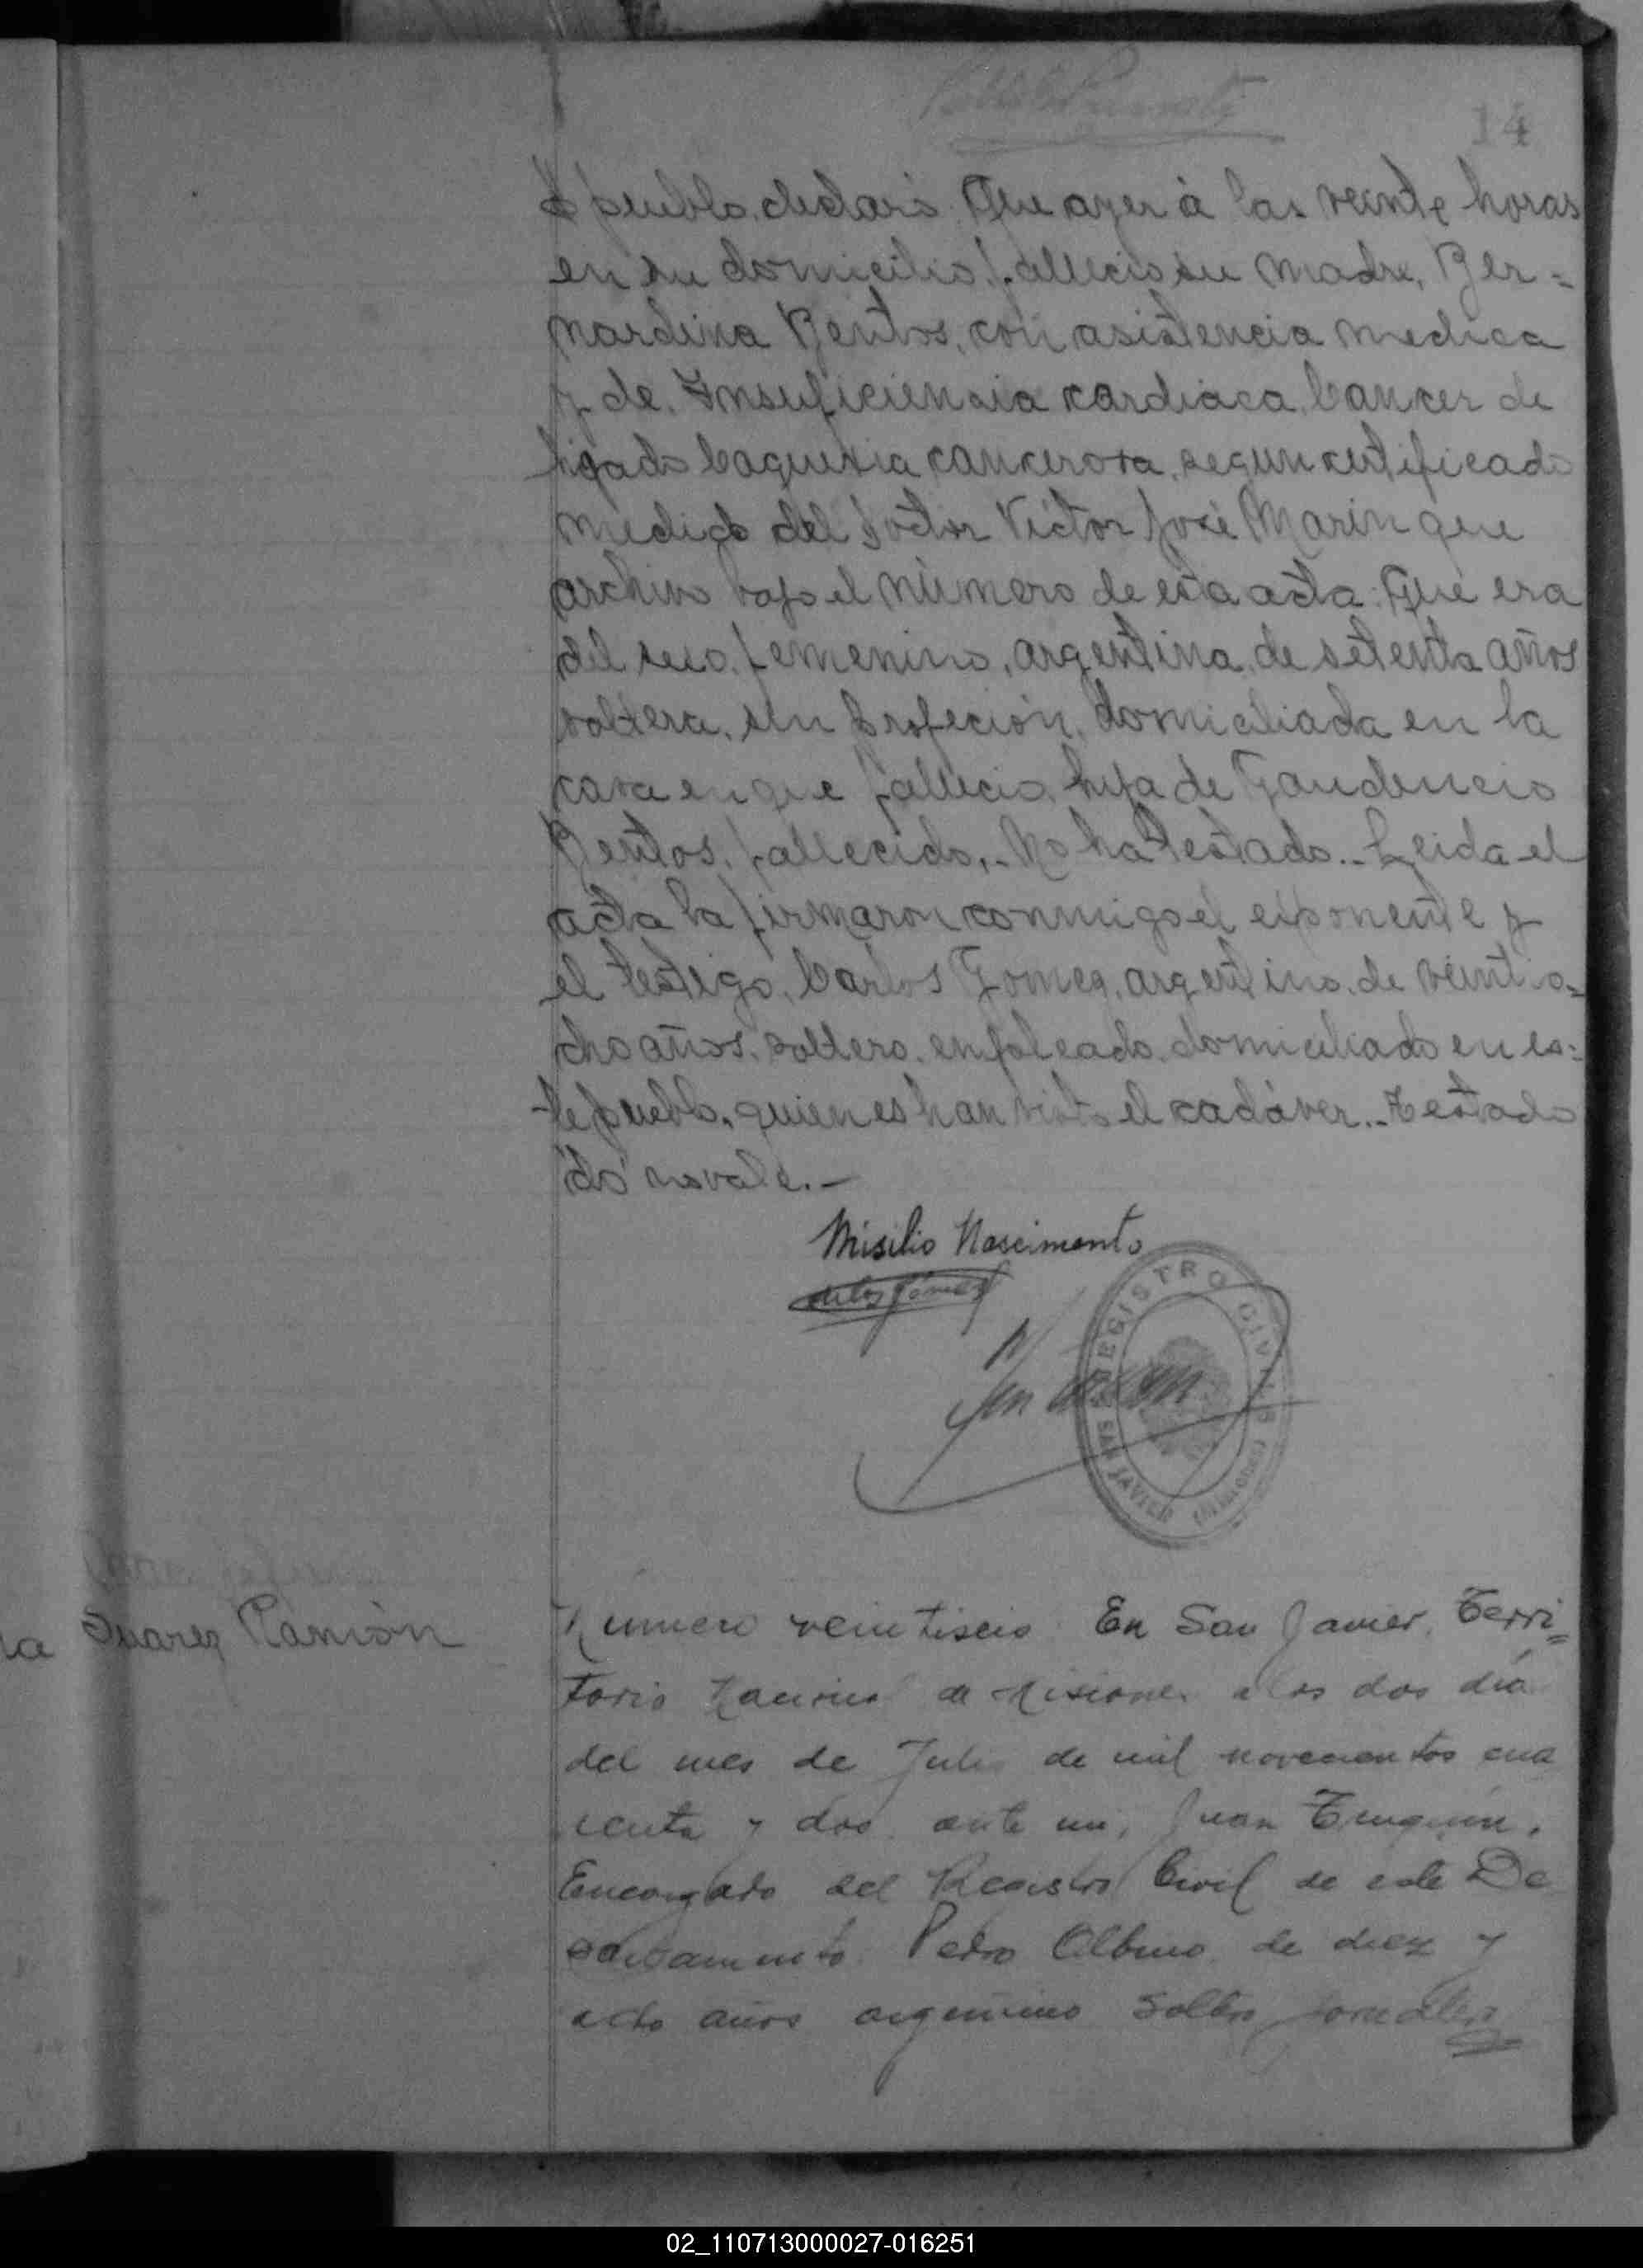 14
pueblo, declaró: Que ayer á las veinte horas
en su domicilio fallecio su madre, Ber=
nardina Bentos, con asistencia medica
y de Insuficiencia cardiaca, Cancer de
higado Caquexia cancerosa, segun certificado
medico del doctor Victor José Marin que
archivo bajo el número de esta acta: Que era
del sexo femenino, argentina, de setenta años
soltera, sin profeción, domiciliada en la
casa en que fallecio, hija de Gaudencio
Bentos, fallecido,- No ha testado.- Leida el
acta la firmaron conmigo el exponente y
el testigo, Carlos Gomez, argentino, de veintio=
cho años, soltero, empleado, domiciliado en es=
te pueblo, quienes han visto el cadáver.- Testado
"do" no vale.-
Misilio Nascimento
Carlos Gómez
REGISTRO CIVIL
SAN JAVIER (Misiones)
la
Suarez Ramón
Número veintiseis. En San Javier, Terri=
torio Nacional de Misiones a los dos dia
del mes de Julio de mil novecientos cua
renta y dos, ante mi, Juan
Encargado del Registro Civil de este De
partamento. Pedro Albino, de diez y
ocho años argentino soltero jornalero
02_110713000027-016251